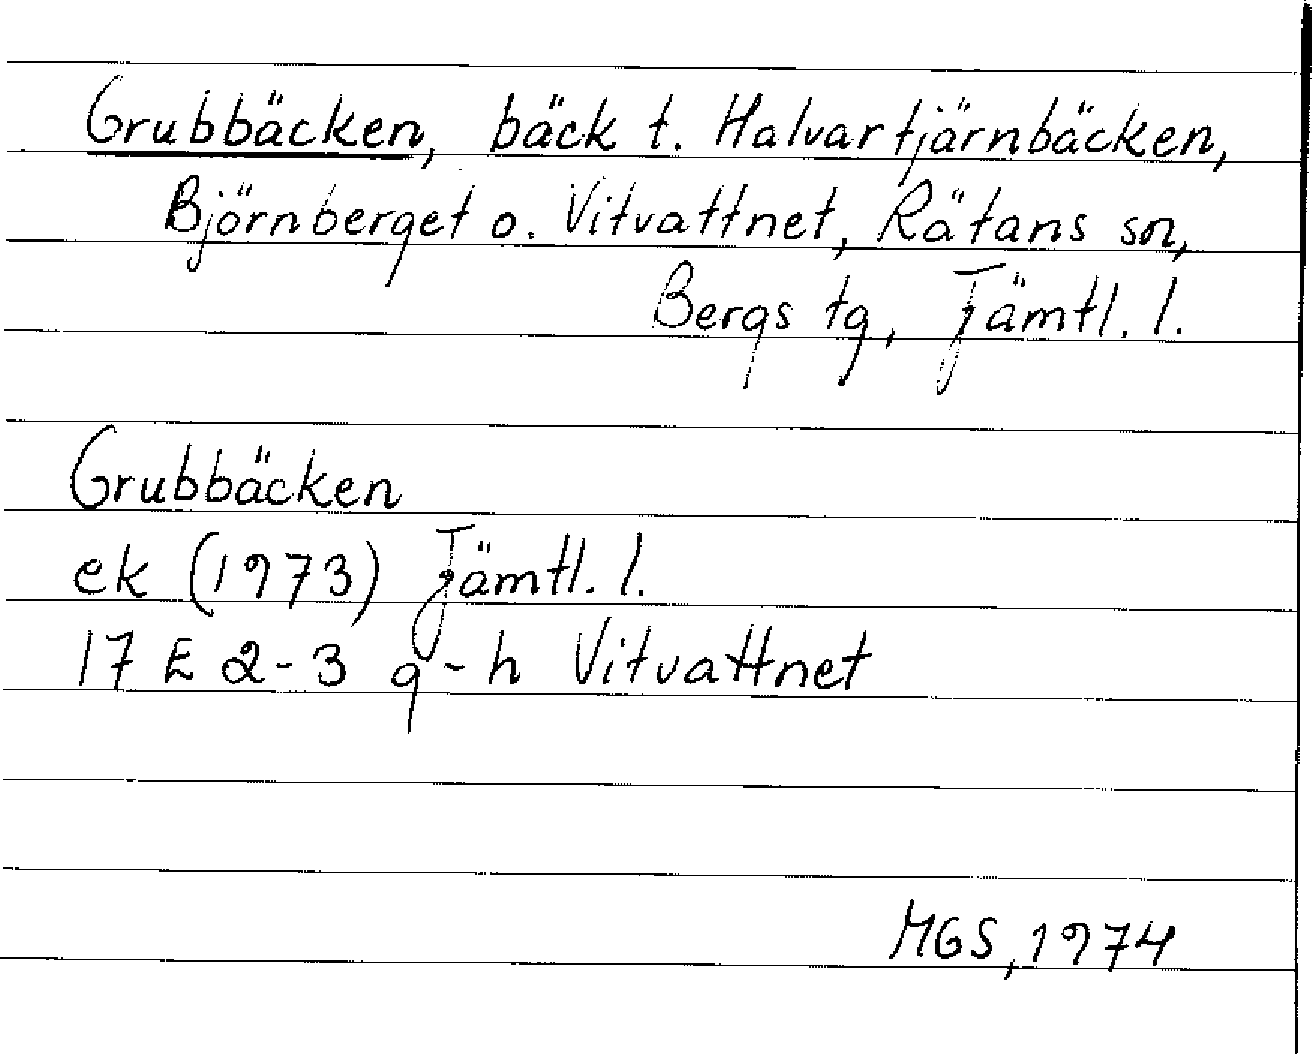 Grubbäcken, bäck t. Halvartjärnbäcken,
Björnberget o. Vitvattnet, Rätans sn,
Bergs tg, Jämtl. l.
Grubbäcken
ek (1973) Jämtl. l.
17 E 2-3 g-h Vitvattnet
MGS, 1974